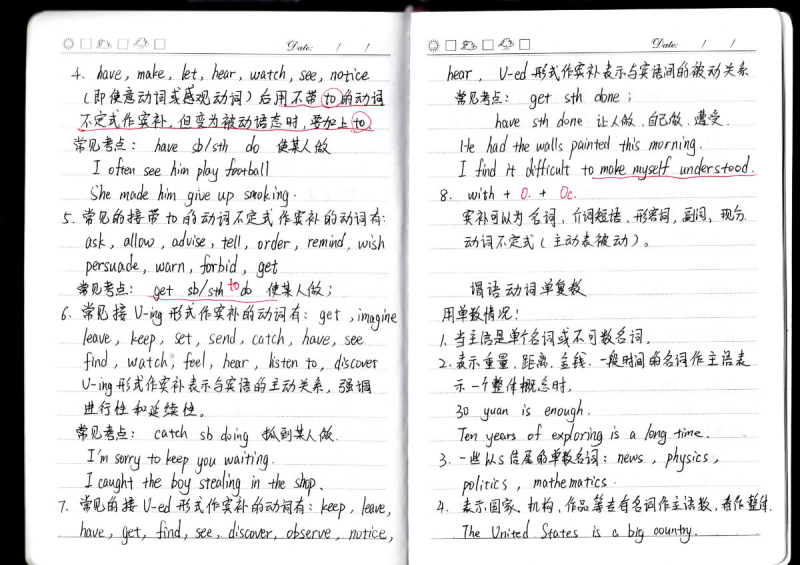 Date: / /
4. have, make, let, hear, watch, see, notice
(即使意动词或感观动词)后用不带to的动词
不定式作宾补,但变为被动语态时,要加上to.
常见考点: have sb/sth do 使某人做
I often see him play football
She made him give up smoking.
5. 常见的接带to的动词不定式作宾补的动词有:
ask, allow, advise, tell, order, remind, wish
persuade, warn, forbid, get
常见考点: get sb/sth to do 使某人做;
6. 常见接V-ing形式作宾补的动词有: get, imagine
leave, keep, set, send, catch, have, see
find, watch, feel, hear, listen to, discover
V-ing形式作宾补表示与宾语的主动关系,强调
进行性和延续性。
常见考点: catch sb doing 抓到某人做.
I'm sorry to keep you waiting.
I caught the boy stealing in the shop.
7. 常见的接V-ed形式作宾补的动词有: keep, leave,
have, get, find, see, discover, observe, notice,
Date: / /
hear, V-ed形式作宾补表示与宾语间的被动关系
常见考点: get sth done;
have sth done 让人做、自己做、遭受.
He had the walls painted this morning.
I find it difficult to make myself understood.
8. with + O. + Oc.
宾补可以为名词、介词短语、形容词,副词、现分
动词不定式(主动表被动)。
谓语动词单复数
用单数情况:
1. 当主语是单个名词或不可数名词。
2. 表示重量、距离、金钱、一段时间的名词作主语表
示一个整体概念时.
30 yuan is enough.
Ten years of exploring is a long time.
3. 一些以s结尾的单数名词: news, physics,
politics, mathematics.
4. 表示国家、机构、作品等专有名词作主语数,看作整体.
The United States is a big country.